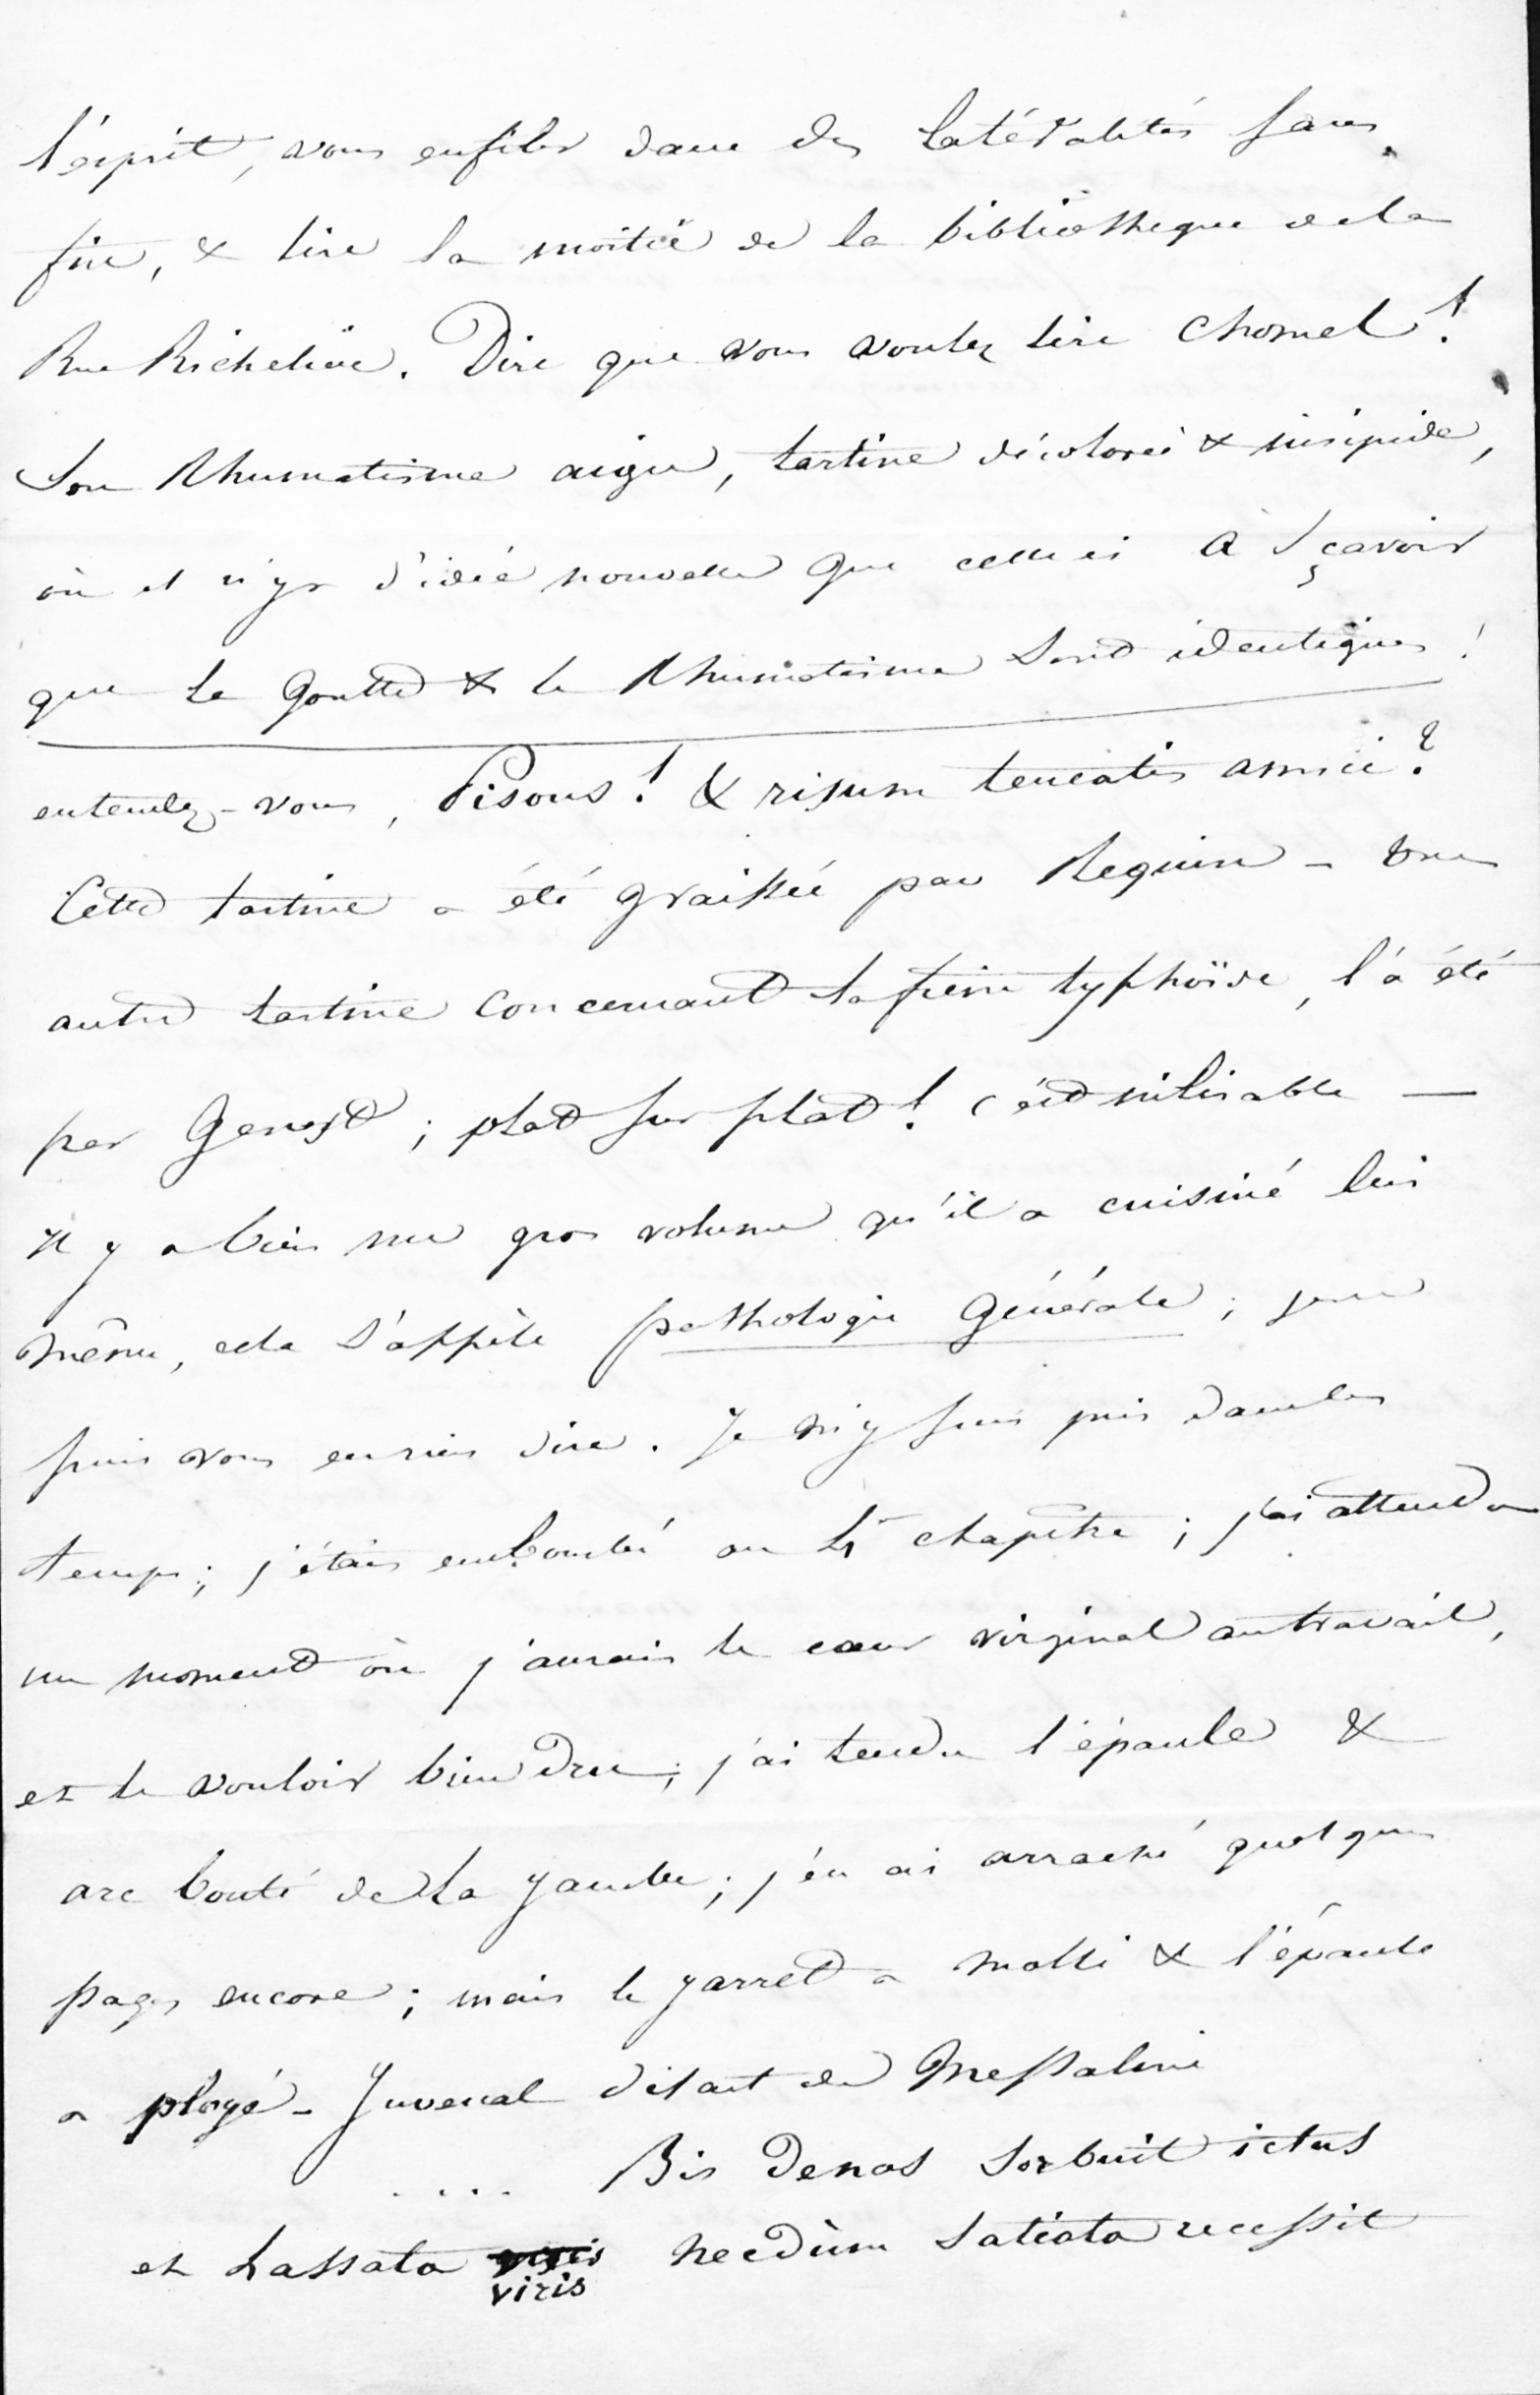 l'esprit, vous enfiler dans des latéralités sans
fin, & lire la moitié de la bibliothèque de la
Rue Richelieu. Dire que vous voulez lire Chomel !
Son Rhumatisme aigu, tartine décolorée & insipide,
où il n'y a d'idée nouvelle que celle ci à sçavoir
que la Goutte & le Rhumatisme sont identiques !
entendez-vous, Pisons ! & risum teneatis amici ?
Cette tartine a été graissée par Requin - une
autre tartine concernant la fièvre typhoïde, l'a été
par Genest ; plat sur plat ! c'est illisible —
Il y a bien un gros volume qu'il a cuisiné lui
même, cela s'appèle pathologie Générale ; je ne
puis vous en rien dire. Je m'y suis pris dans les
temps ; j'étais embourbé au 4e chapitre ; j'ai attendu
un moment où j'aurais le cœur virginal au travail,
et le vouloir bien dru ; j'ai tendu l'épaule &
arc bouté de la jambe ; j'en ai arraché quelques
pages encore ; mais le jarret a molli & l'épaule
a ployé - Juvenal disait de Messaline
.... Bis denos sorbuit ictus
et Lassata viris necdùm satiata recessit